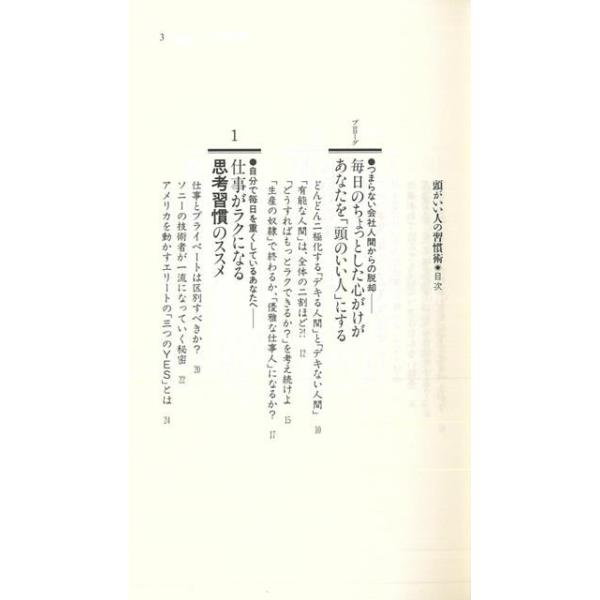 頭がいい人の習慣術●目次
プロローグ
●つまらない会社人間からの脱却──
毎日のちょっとした心がけが
あなたを「頭のいい人」にする
どんどん二極化する「デキる人間」と「デキない人間」 10
「有能な人間」は、全体の二割ほど?! 12
「どうすればもっとラクできるか?」を考え続けよ 15
「生産の奴隷」で終わるか、「優雅な仕事人」になるか? 17
1
●自分で毎日を重くしているあなたへ──
仕事がラクになる
思考習慣のススメ
仕事とプライベートは区別すべきか? 20
ソニーの技術者が一流になっていく秘密 22
アメリカを動かすエリートの「三つのYES」とは 24
3